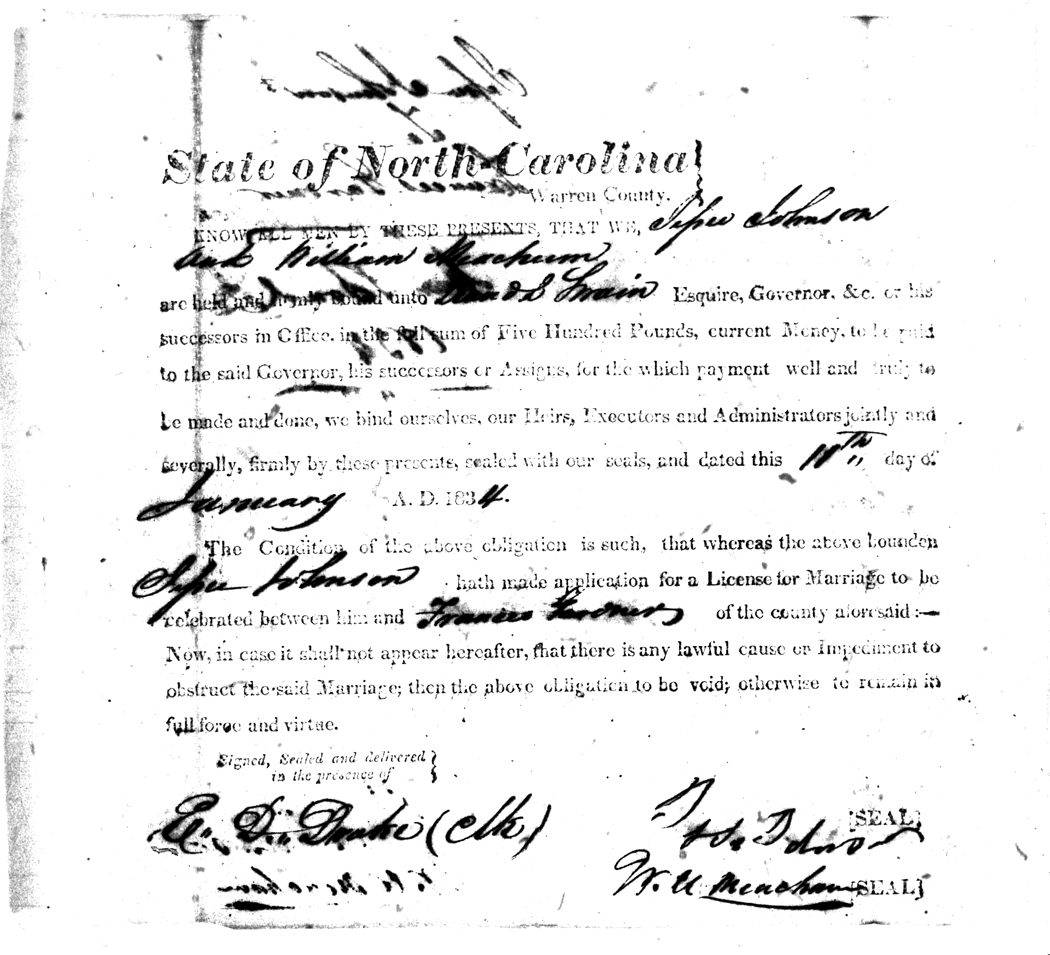 State of North-Carolina
Warren County.
KNOW ALL MEN BY THESE PRESENTS, THAT WE, Johnson
and William Meacham
are held and firmly bound unto Swain Esquire, Governor, &c. or his
successors in Office, in the full sum of Five Hundred Pounds, current Money, to be paid
to the said Governor, his successors or Assigns, for the which payment well and truly to
be made and done, we bind ourselves, our Heirs, Executors and Administrators jointly and
severally, firmly by these presents, sealed with our seals, and dated this 11th day of
January A. D. 1834.
The Condition of the above obligation is such, that whereas the above bounden
Johnson hath made application for a License for Marriage to be
celebrated between him and Frances of the county aforesaid:—
Now, in case it shall not appear hereafter, that there is any lawful cause or Impediment to
obstruct the said Marriage; then the above obligation to be void; otherwise to remain in
full force and virtue.
Signed, Sealed and delivered
in the presence of
E. D. Drake (Clk)
[SEAL]
Meacham [SEAL]